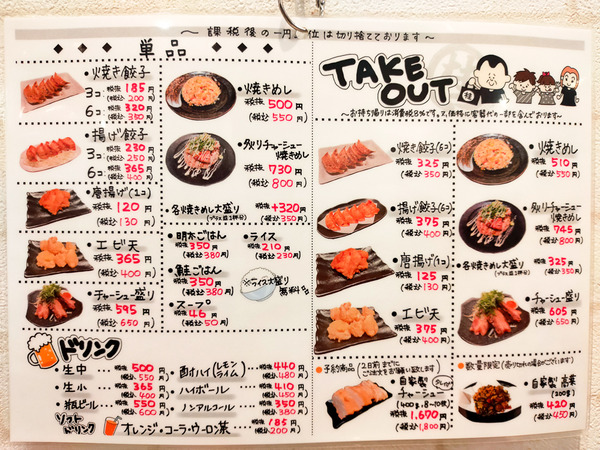 〜課税後の一円単位は切り捨てております〜
◆ ◆ ◆ 単品 ◆ ◆ ◆
・焼き餃子
3コ 税抜 185円
(税込 200円)
6コ 税抜 320円
(税込 350円)
・揚げ餃子
3コ 税抜 230円
(税込 250円)
6コ 税抜 365円
(税込 400円)
・唐揚げ(1コ)
税抜 120円
(税込 130円)
・エビ天
税抜 365円
(税込 400円)
・チャーシュー盛り
税抜 595円
(税込 650円)
・焼きめし
税抜 500円
(税込 550円)
・炙りチャーシュー
焼きめし
税抜 730円
(税込 800円)
・各焼きめし大盛り 税抜 +320円
(税込 350円)
・明太ごはん
税抜 350円
(税込 380円)
・鮭ごはん
税抜 350円
(税込 380円)
・スープ
税抜 46円
(税込 50円)
・ライス
税抜 210円
(税込 230円)
※ライス大盛り
無料
ドリンク
・生中 税抜 500円
(税込 550円)
・生小 税抜 365円
(税込 400円)
・瓶ビール 税抜 550円
(税込 600円)
・酎ハイ(レモン ライム) 税抜 440円
(税込 480円)
・ハイボール 税抜 410円
(税込 450円)
・ノンアルコール 税抜 350円
(税込 380円)
ソフト
ドリンク オレンジ・コーラ・ウーロン茶 税抜 185円
(税込 200円)
TAKE
OUT
〜お持ち帰りは消費税8%です。又、価格に容器代の一部を含んでおります〜
・焼き餃子(6コ)
税抜 325円
(税込 350円)
・揚げ餃子(6コ)
税抜 375円
(税込 400円)
・唐揚げ(1コ)
税抜 125円
(税込 130円)
・エビ天
税抜 375円
(税込 400円)
・焼きめし
税抜 510円
(税込 550円)
・炙りチャーシュー
焼きめし
税抜 745円
(税込 800円)
・各焼きめし大盛り 税抜 325円
(税込 350円)
・チャーシュー盛り
税抜 605円
(税込 650円)
●予約商品(2日前までに ご注文をお願い致します)
・自家製
チャーシュー
(400g、8〜10枚)
税抜 1,670円
(税込 1,800円)
●数量限定(売り切れの場合がございます)
・自家製 高菜
(200g)
税抜 420円
(税込 450円)